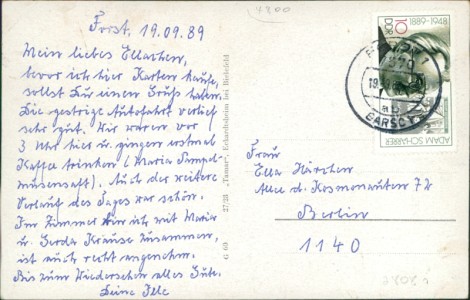 Forst, 19.09.89
Mein liebes Ellachen,
bevor ich hier Karten kaufe,
sollst Du einen Gruß haben.
Die gestrige Autofahrt verlief
sehr gut. Wir waren vor
3 Uhr hier u. gingen erstmal
Kaffee trinken (Maria Pampel-
musensaft). Auch der weitere
Verlauf des Tages war schön.
Im Zimmer bin ich mit Maria
u. Gerda Krause zusammen,
ist auch recht angenehm.
Bis zum Wiedersehen alles Gute.
Deine Ille
G 60 27/28 „Tamar“, Eckardtsheim bei Bielefeld
10
DDR
1889-1948
ADAM SCHARRER
19.
Frau
Ella Kirschen
Allee d. Kosmonauten 72
Berlin
1140